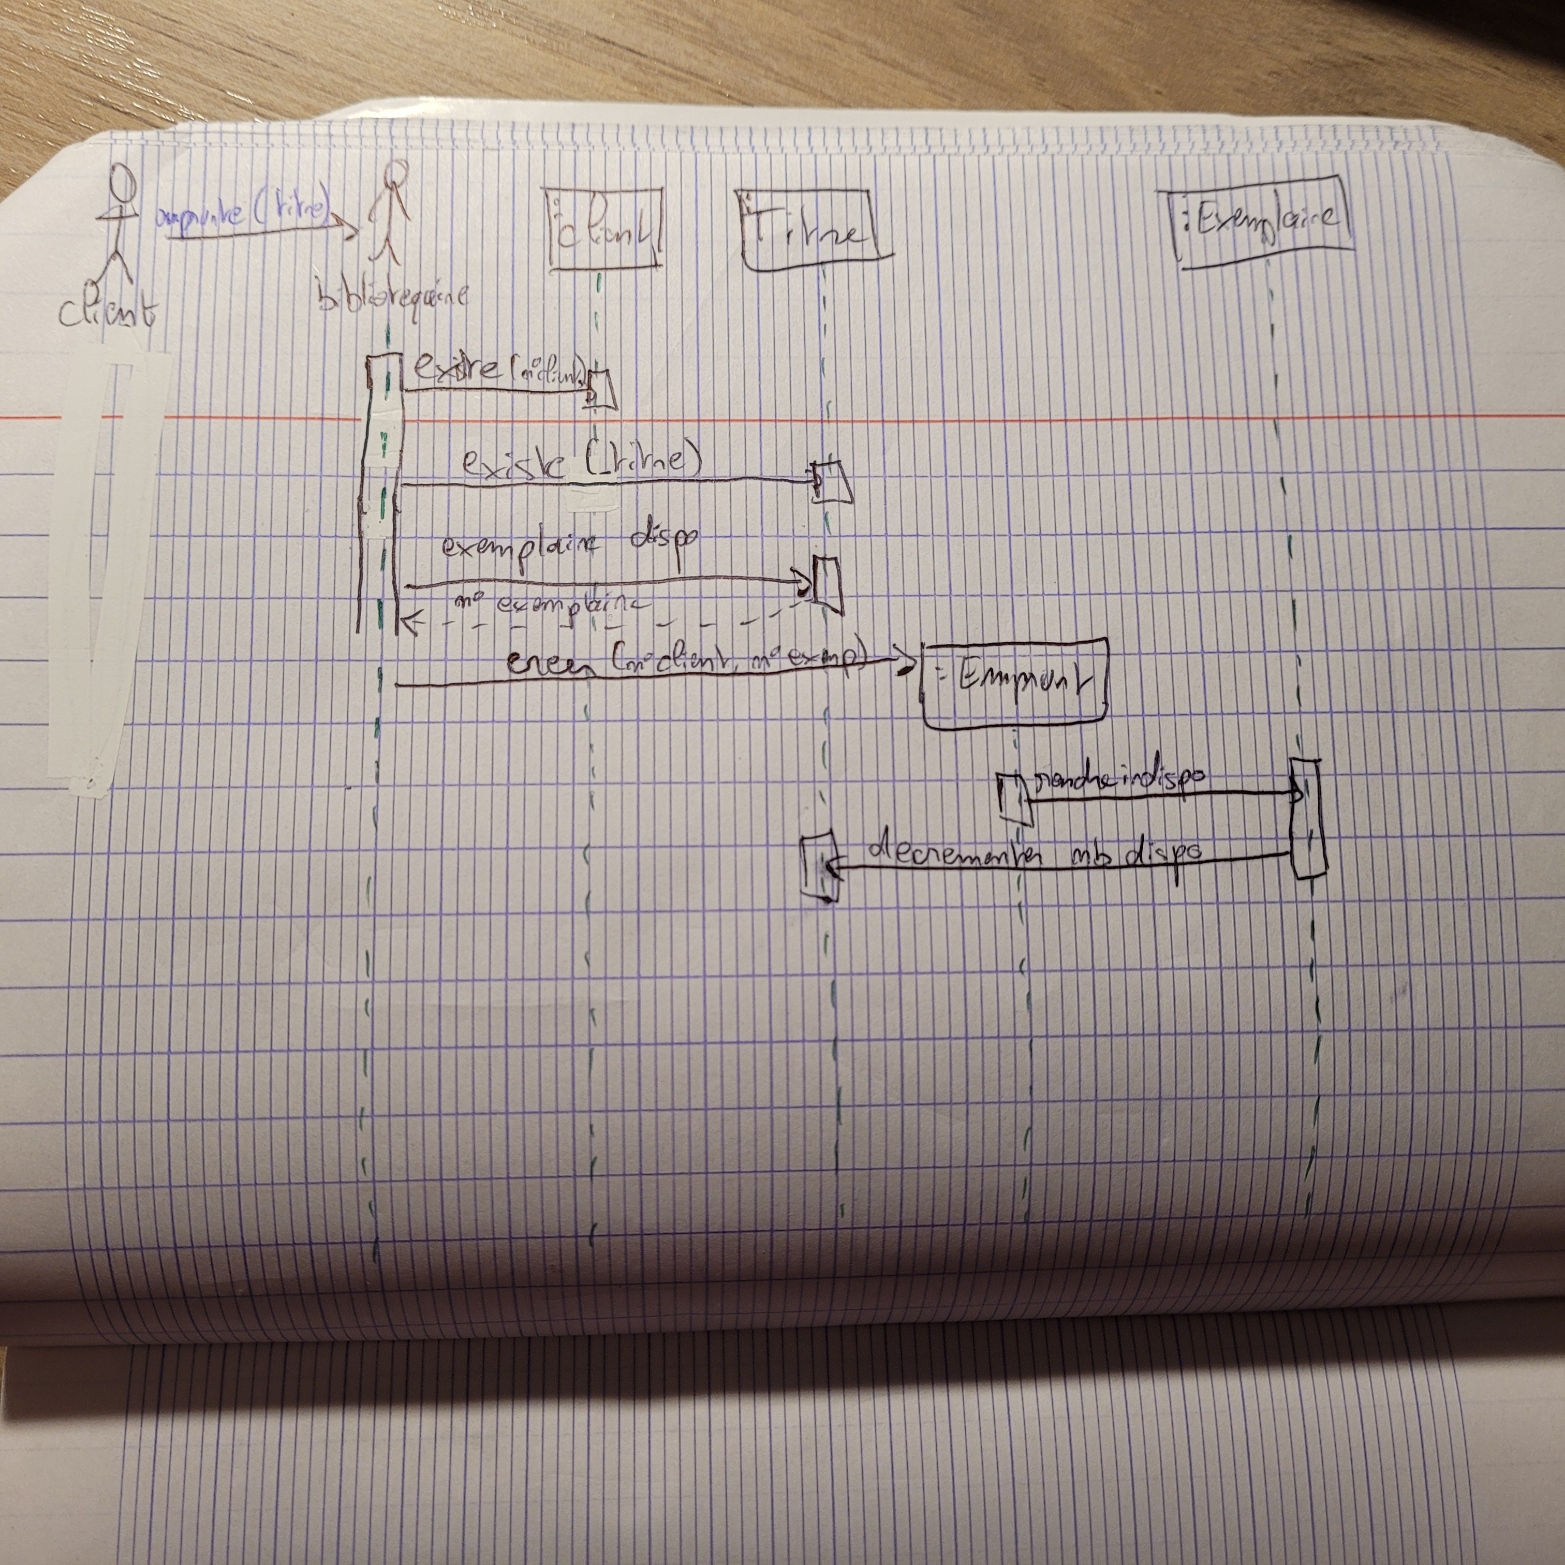 client
bibliotequaire
:client
:Titre
:Exemplaire
existe (n°client)
existe (titre)
exemplaire dispo
n° exemplaire
creer (n°client, n° exemp)
:Emprunt
rendre indispo
decrementer nb dispo